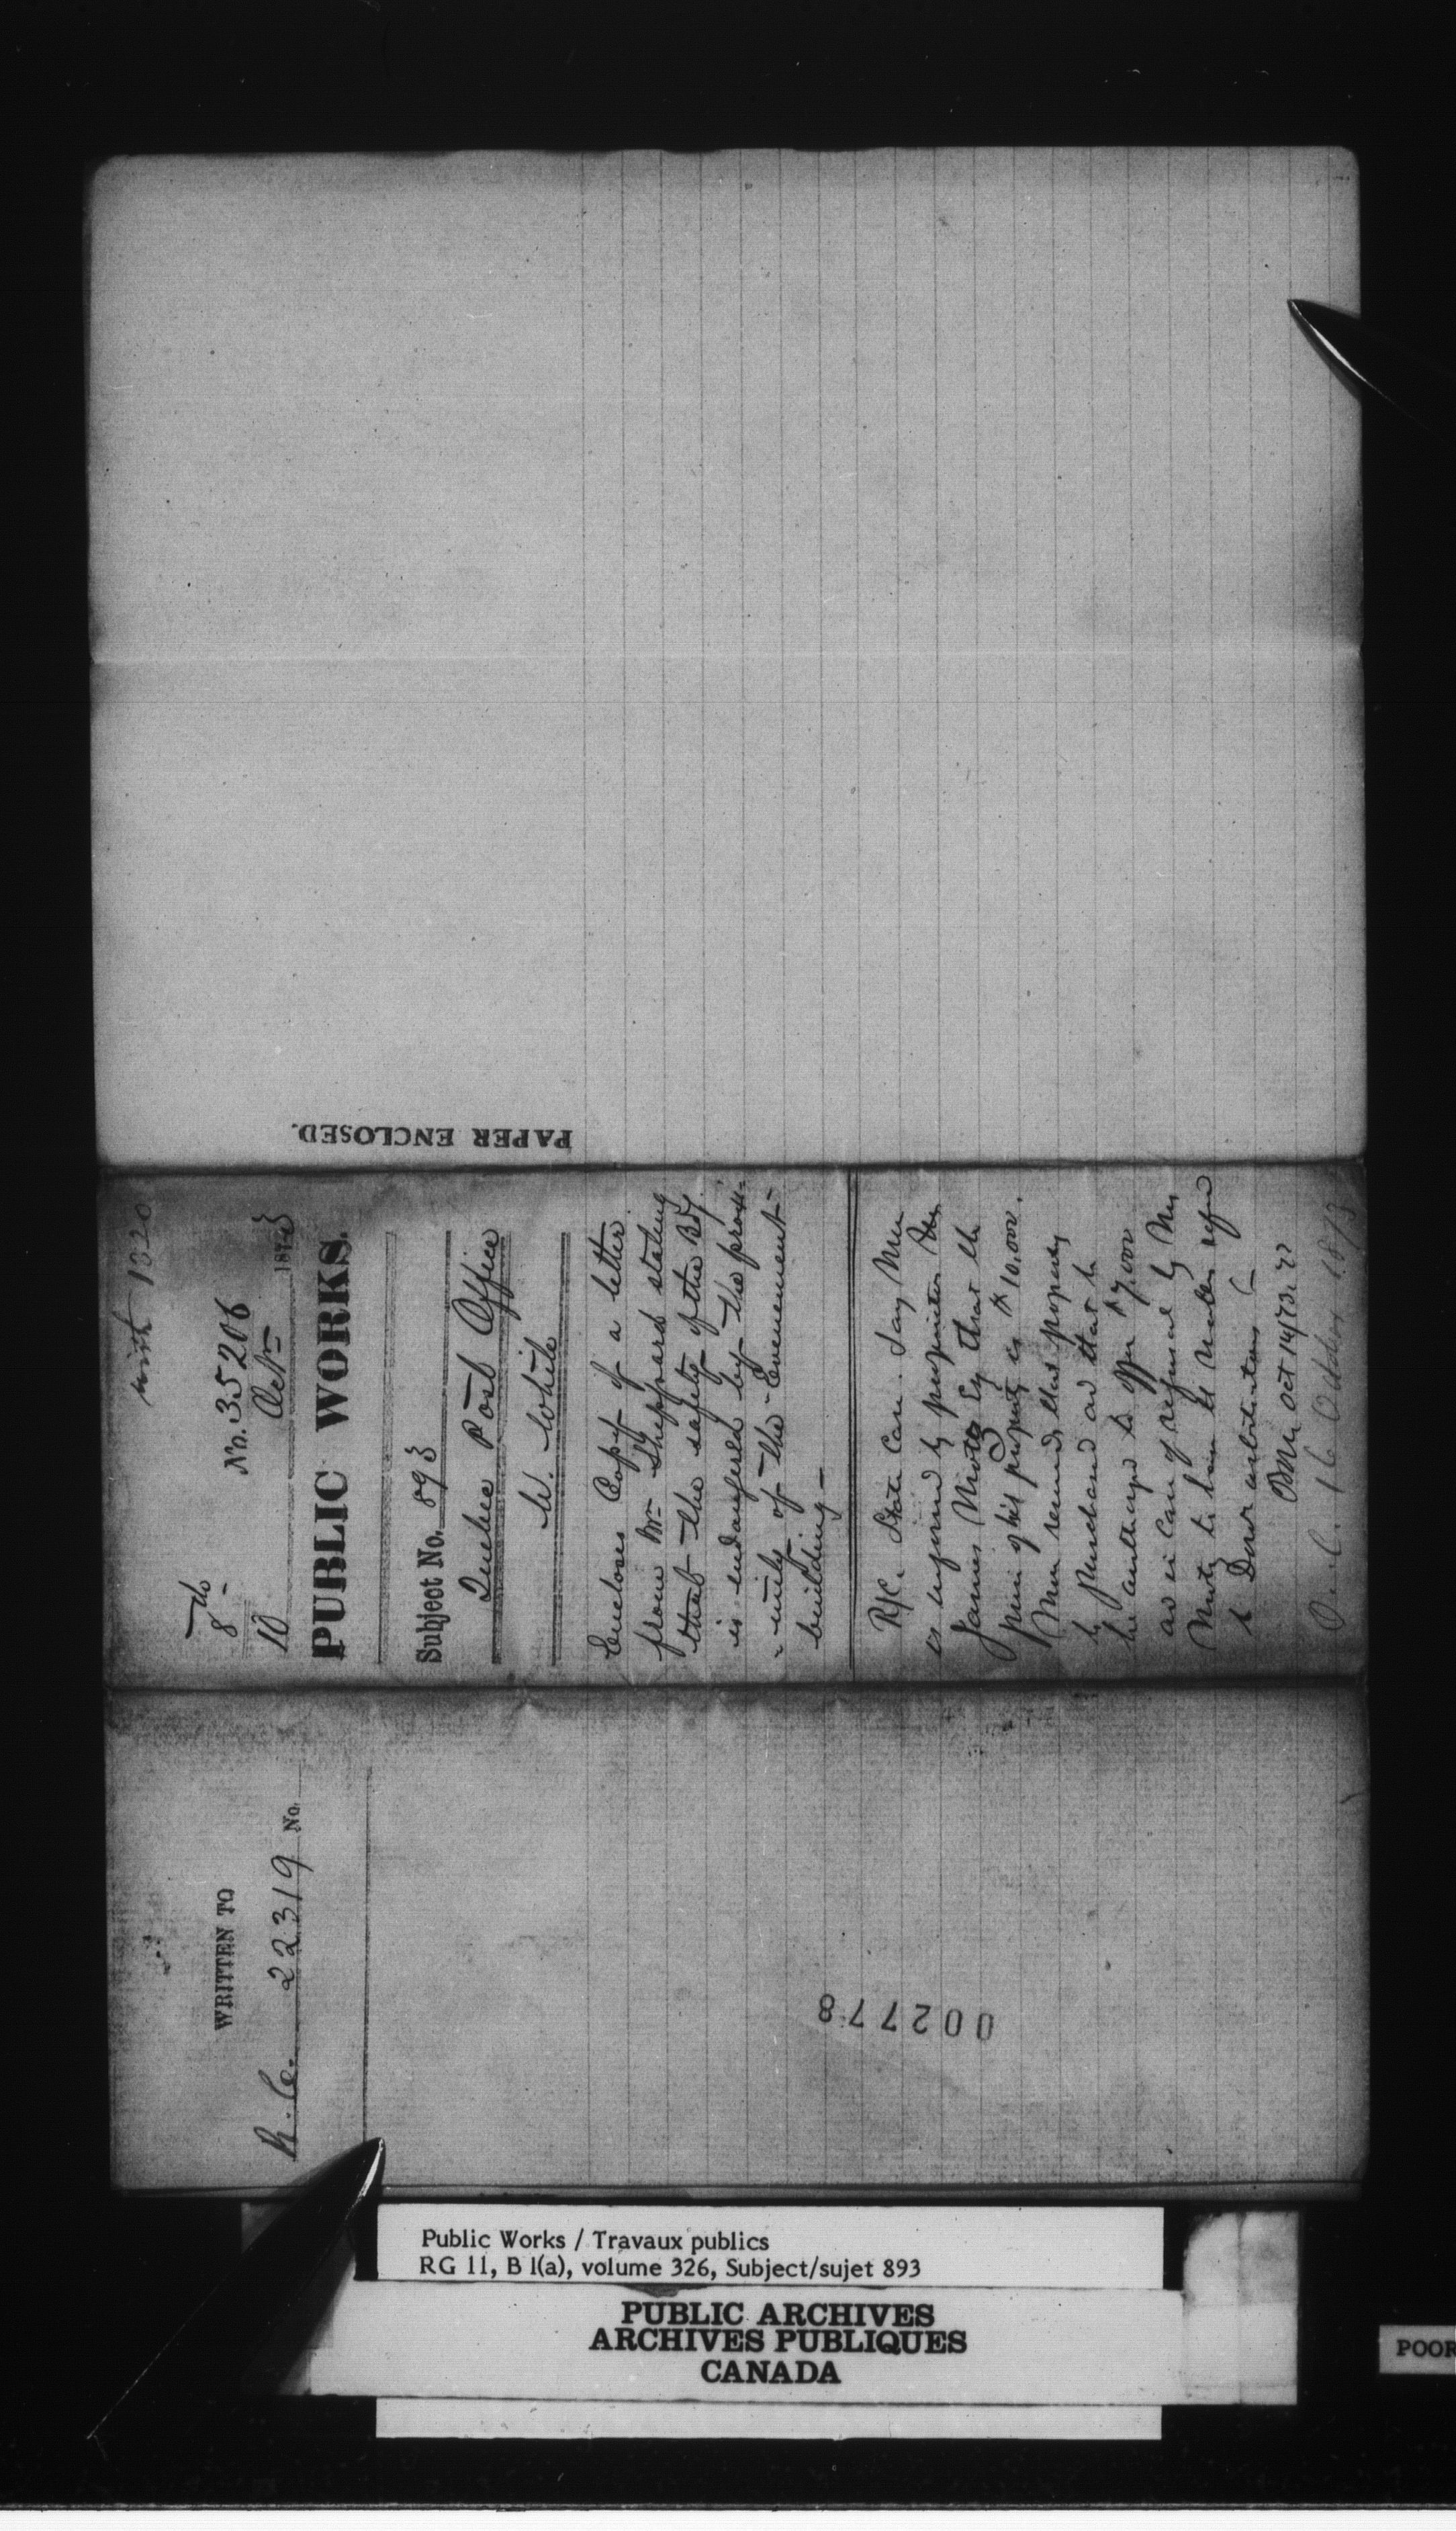 with 1320
No. 35206
8th
10 Octr 1873
PUBLIC WORKS.
Subject No. 893
Quebec Post Office
W. White
Encloses Copy of a letter
from Mr Sheppard stating
that the safety of the Bdg.
is endangered by the proxi=
=mity of the "Evenement"
building—
R.P.C. State Case. Say Min
is informed by proprietor
James Motz Esq that the
price of his property is $10,000.
Min recomds that property
be purchased and that he
be authorized to offer $7,000
and in case of refusal by Mr
Motz to have the matter referred
to Domn arbitrators
Oct 14/73
O. in C. 16 October 1873
PAPER ENCLOSED.
WRITTEN TO
P.C. 22319 No.
002778
Public Works / Travaux publics
RG 11, B 1(a), volume 326, Subject/sujet 893
PUBLIC ARCHIVES
ARCHIVES PUBLIQUES
CANADA
POOR